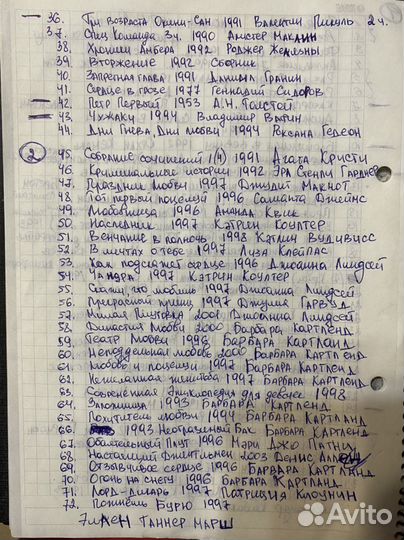 36. Три возраста Окини-Сан 1991 Валентин Пикуль 2 ч.
37. Спец Команда 3ч. 1990 Алистер Маклин
38. Хроники Амбера 1992 Роджер Желязны
39. Вторжение 1992 Сборник
40. Запретная глава 1991 Даниил Гранин
41. Сердце в грозе 1977 Геннадий Сидоров
42. Петр Первый 1953 А.Н.Толстой
43. Чужаки 1994 Владимир Ватин
44. Дни Гнева, Дни любви 1994 Роксана Гедеон
2
45. Собрание сочинений (4) 1991 Агата Кристи
46. Криминальные истории 1992 Эрл Стенли Гарднер
47. Праздник любви 1997 Джудит Макнот
48. Тот первый поцелуй 1996 Саманта Джеймс
49. Любовница 1996 Аманда Квик
50. Наследник 1997 Кэтрин Коултер
51. Венчание в полночь 1998 Кэтлин Вудивисс
52. В мечтах о тебе 1997 Лиза Клейпас
53. Как подскажет сердце 1996 Джоанна Линдсей
54. Чандра 1997 Кэтрин Коултер
55. Скажи, что любишь 1997 Джоанна Линдсей
56. Прекрасный принц 1997 Джулия Гарвуд
57. Милая плутовка 2001 Джоанна Линдсей
58. Династия Любви 2000 Барбара Картленд
59. Театр Любви 1996 Барбара Картланд
60. Неподдельная любовь 2000 Барбара Картленд
61. Любовь и поцелуи 1997 Барбара Картленд
62. Нежеланная женитьба 1997 Барбара Картленд
63. Современная Энциклопедия для девочек 1998
64. Заложница 1993 Барбара Картленд
65. Похититель любви 1994 Барбара Картланд
66. 1993 Неотразимый Бак. Барбара Картленд
67. Обаятельный Плут 1996 Мэри Джо Патни
68. Настоящий Джентльмен 2003 Денис Аллен
69. Отзывчивое сердце 1996 Барвара Картланд
70. Огонь на снегу 1996 Барбара Картланд
71. Лорд-дикарь 1997 Патриция Коулин
72. Поймень Бурю 1997
Эллен Таннер Марш
Avito